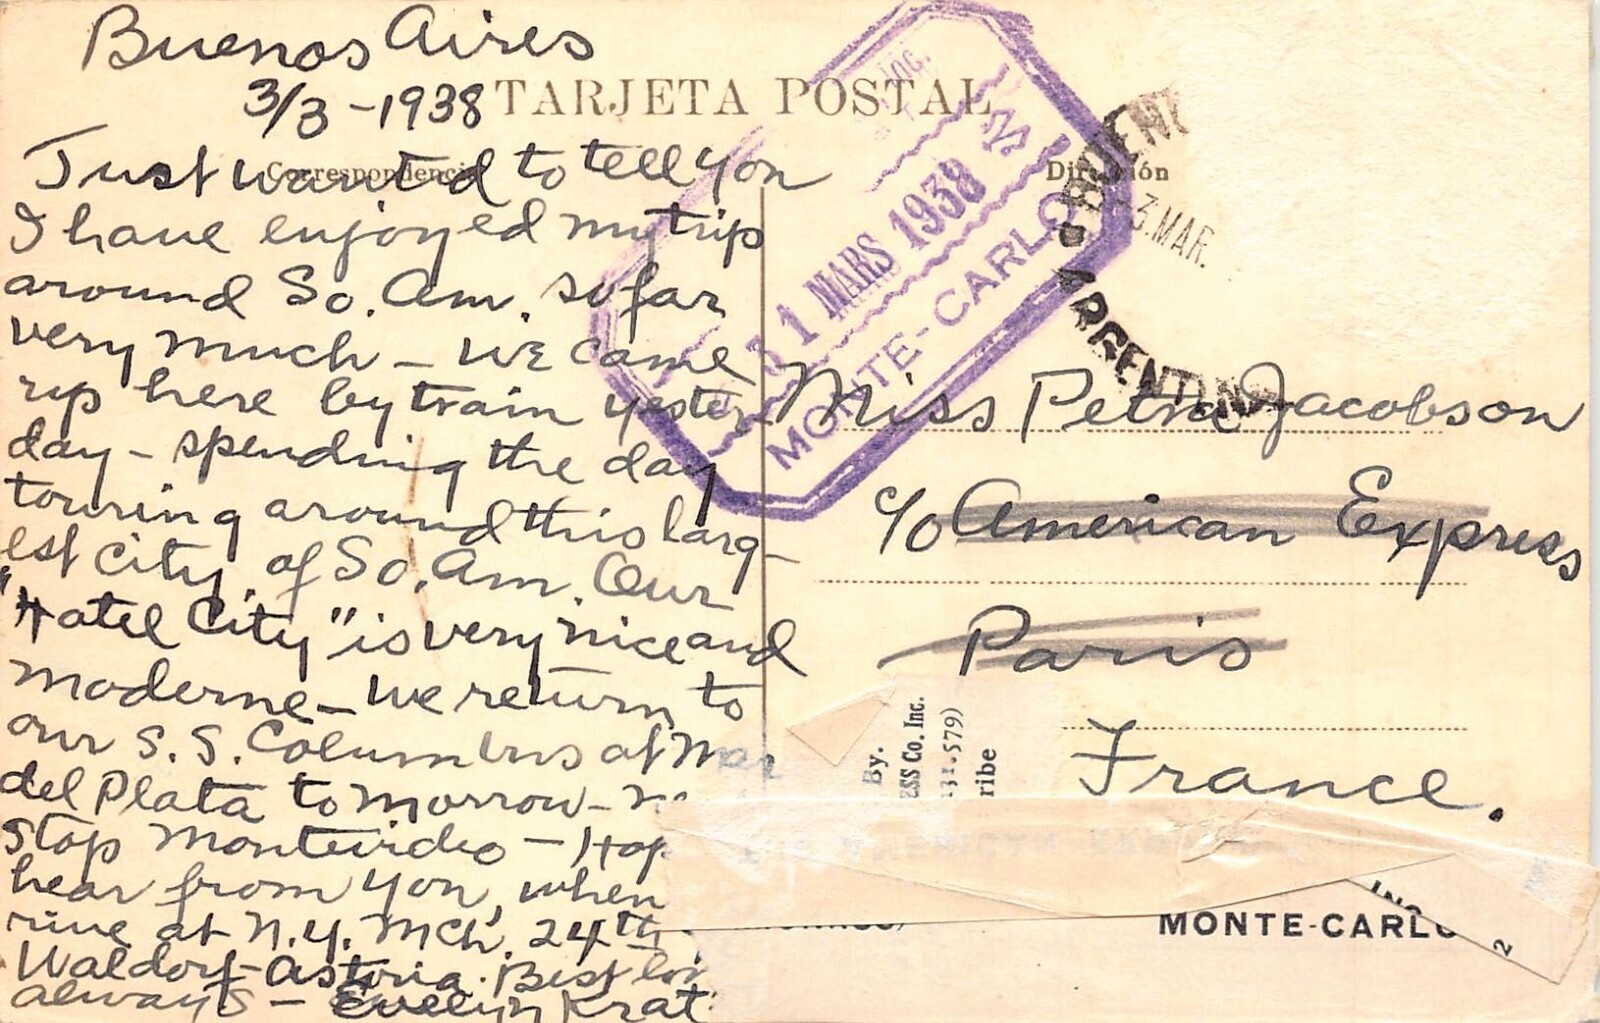 Buenos Aires
3/3-1938
TARJETA POSTAL
Correspondencia
Dirección
Just wanted to tell you
I have enjoyed my trip
around So. Am. so far
very much - We came
up here by train yester-
day - spending the day
touring around this larg-
est City of So. Am. Our
"Hotel City" is very nice and
moderne - We return to
our S.S. Columbus at Mar
del Plata tomorrow -
stop Montevideo - Hop
hear from you, when
rive at N.Y. Mch. 24th
Waldorf-Astoria. Best lov
always - Evelyn Krat
Inc.
11 MARS 1938
MONTE-CARLO
BUENO
3.MAR.
ARGENTINA
Miss Petra Jacobson
c/o American Express
Paris
France.
By.
ESS Co. Inc.
579)
ribe
MONTE-CARLO
INC
2